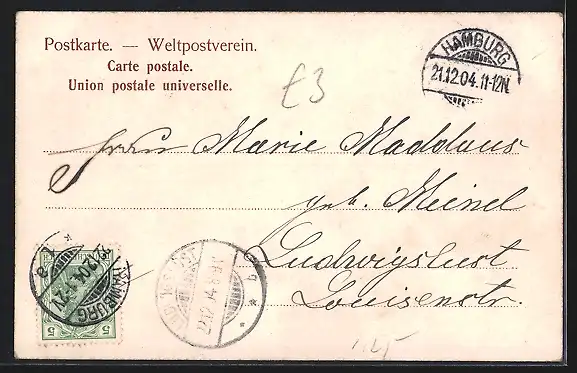 Postkarte. — Weltpostverein.
Carte postale.
Union postale universelle.
HAMBURG
21.12.04.11-12N.
£3
Frau Marie Maddaus
geb. Meinel
Ludwigslust
Louisenstr.
HAMBURG
5 5